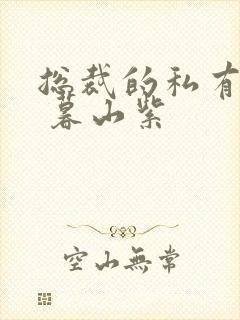 总裁的私有
暮山紫
空山無常